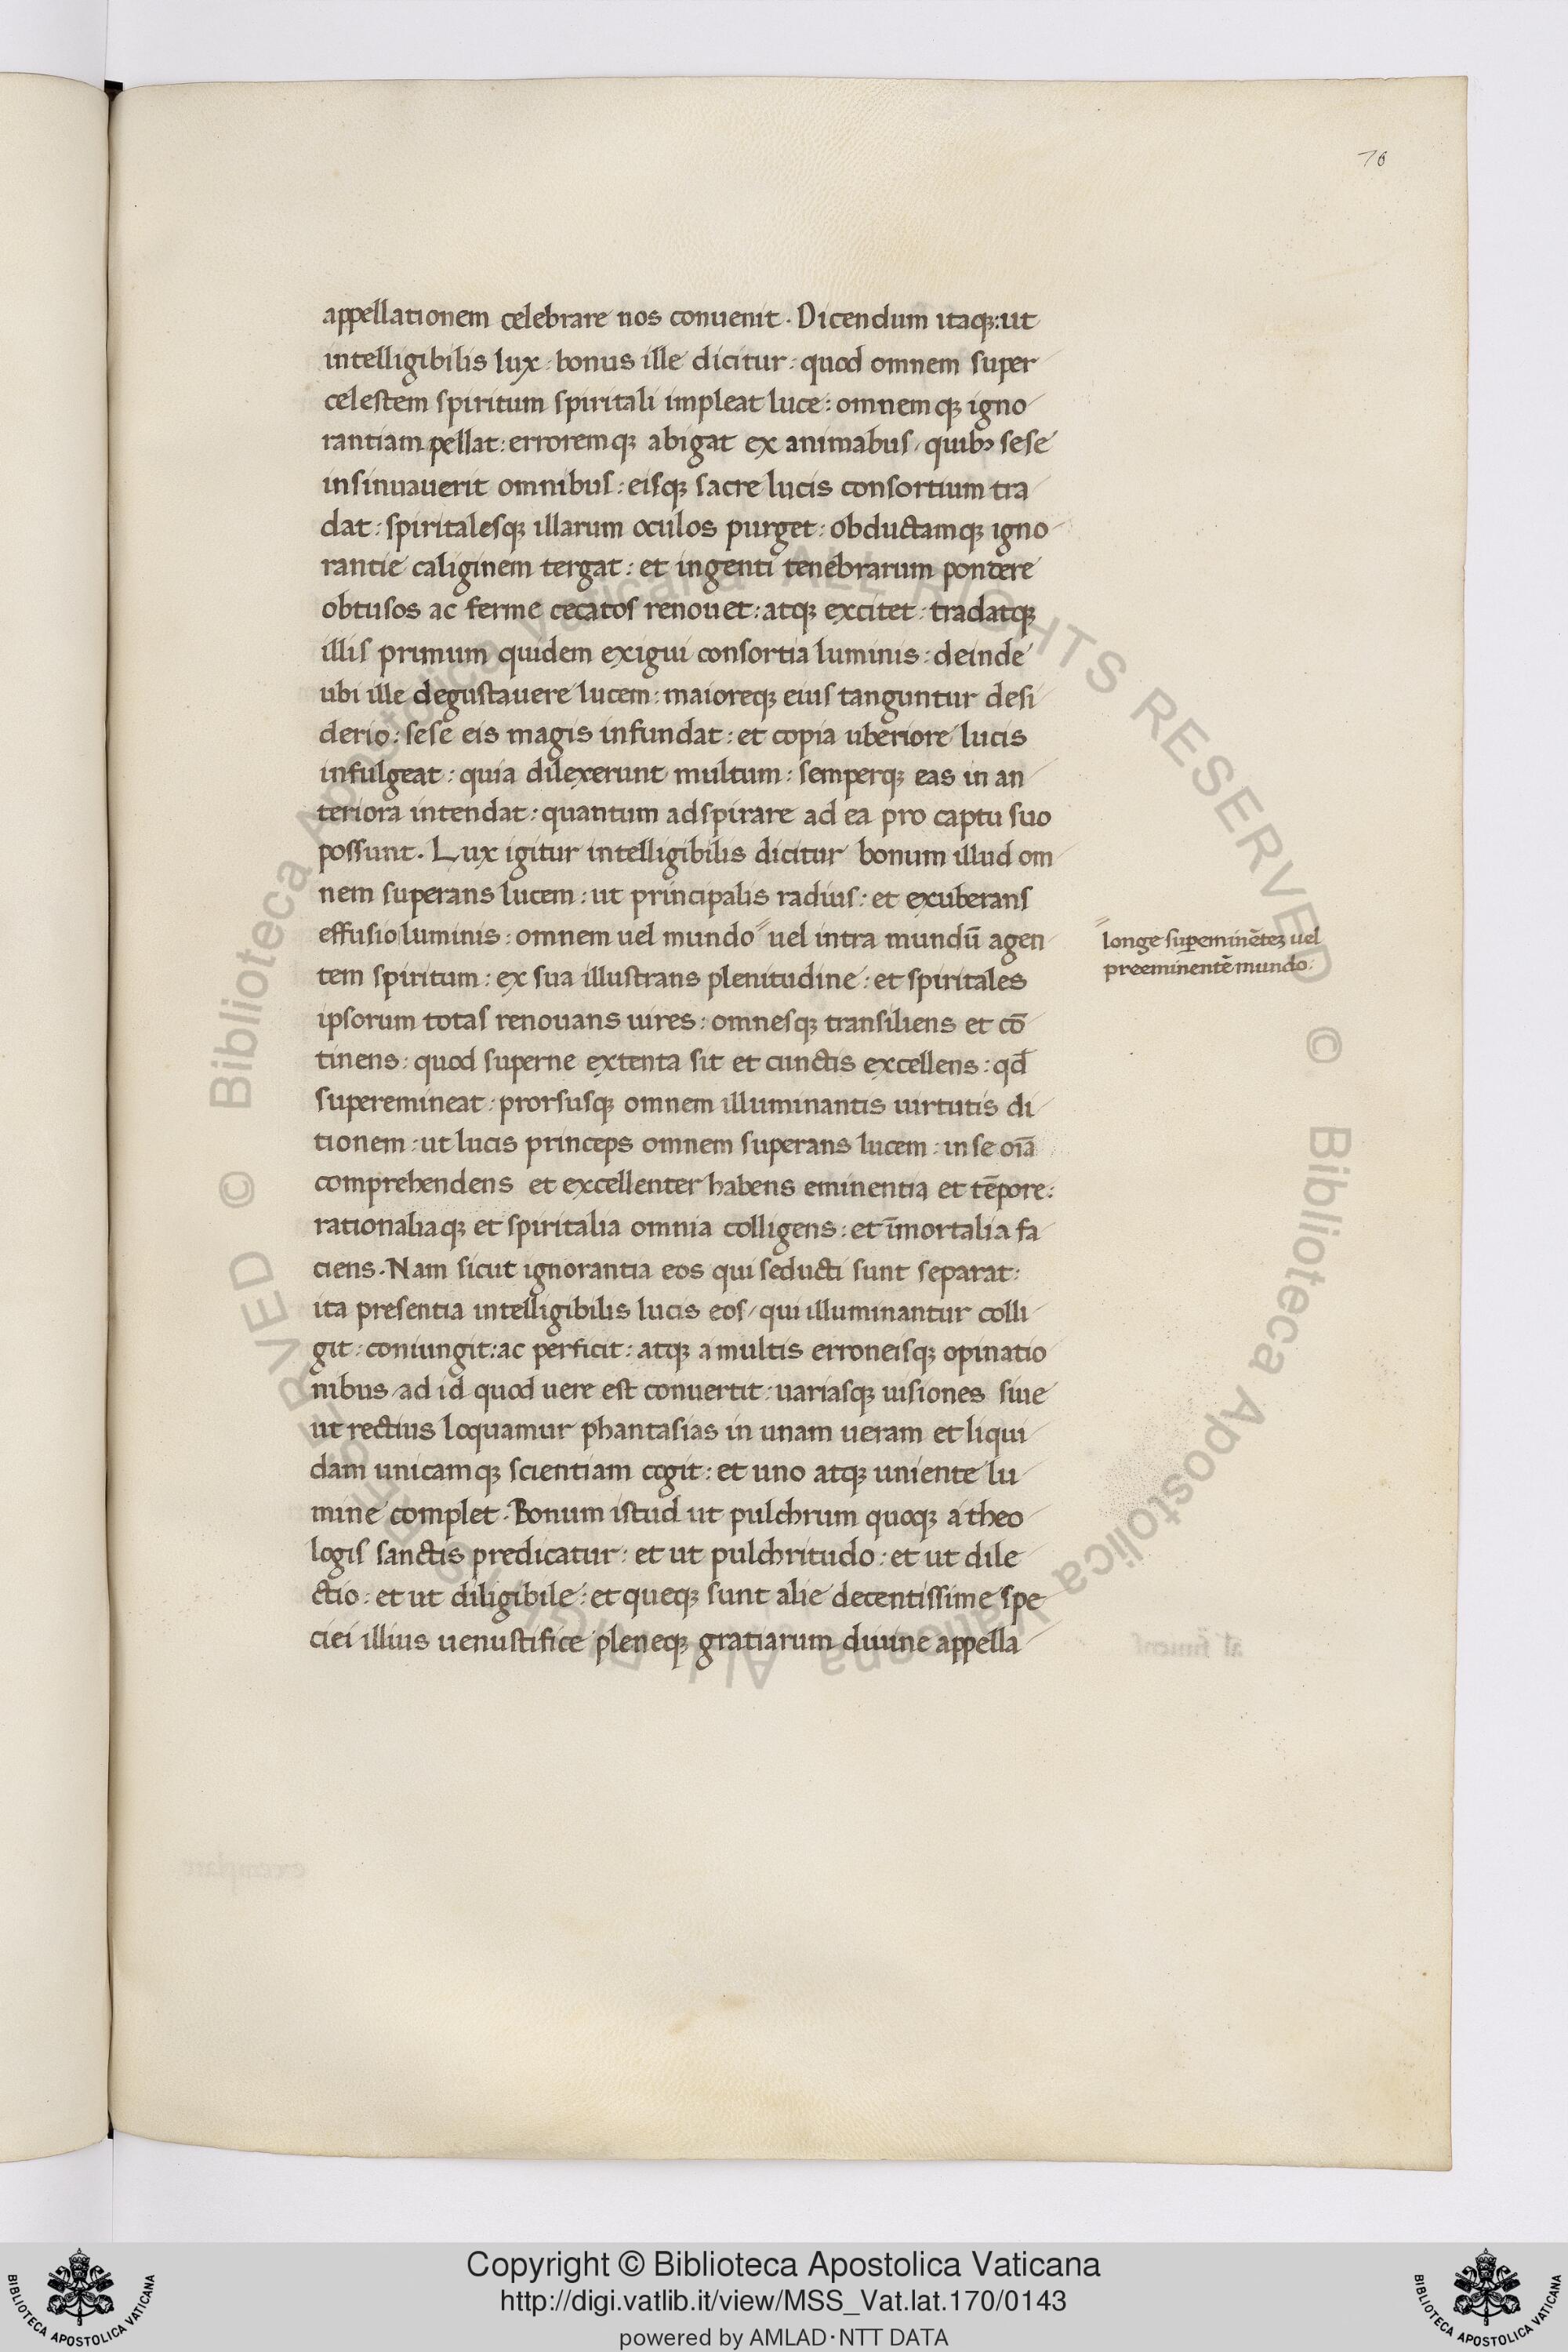 70
appellationem celebrare nos conuenit. Dicendum itaqꝫ: ut
intelligibilis lux: bonus ille dicitur: quod omnem super
celestem spiritum spiritali impleat luce: omnemqꝫ igno
rantiam pellat: erroremqꝫ abigat ex animabus, quibꝰ sese
insinuauerit omnibus: eisqꝫ sacre lucis consortium tra
dat: spiritalesqꝫ illarum oculos purget: obductamqꝫ igno
rantie caliginem tergat: et ingenti tenebrarum pondere
obtusos ac ferme cecatos renouet: atqꝫ excitet: tradatqꝫ
illis primum quidem exigui consortia luminis: deinde
ubi ille degustauere lucem: maioreqꝫ eius tanguntur desi
derio: sese eis magis infundat: et copia uberiore lucis
infulgeat: quia dilexerunt multum: semperqꝫ eas in an
teriora intendat: quantum adspirare ad ea pro captu suo
possunt. Lux igitur intelligibilis dicitur bonum illud om
nem superans lucem: ut principalis radius: et exuberans
effusio luminis: omnem uel mundo uel intra mundū agen
longe supeminētez uel
preeminentē mundo:
tem spiritum: ex sua illustrans plenitudine: et spiritales
ipsorum totas renouans uires: omnesqꝫ transiliens et cō
tinens: quod superne extenta sit et cunctis excellens: qd̄
superemineat: prorsusqꝫ omnem illuminantis uirtutis di
tionem: ut lucis princeps omnem superans lucem: in se oīa
comprehendens et excellenter habens eminentia et tēpore:
rationaliaqꝫ et spiritalia omnia colligens: et īmortalia fa
ciens. Nam sicut ignorantia eos qui seducti sunt separat:
ita presentia intelligibilis lucis eos, qui illuminantur colli
git: coniungit: ac perficit: atqꝫ a multis erroneisqꝫ opinatio
nibus, ad id quod uere est conuertit: uariasqꝫ uisiones siue
ut rectius loquamur phantasias in unam ueram et liqui
dam unicamqꝫ scientiam cogit: et uno atqꝫ uniente lu
mine complet. Bonum istud ut pulchrum quoqꝫ a theo
logis sanctis predicatur: et ut pulchritudo: et ut dile
ctio: et ut diligibile: et queqꝫ sunt alie decentissime spe
ciei illius uenustifice pleneqꝫ gratiarum diuine appella
© Biblioteca Apostolica Vaticana ALL RIGHTS RESERVED © Biblioteca Apostolica Vaticana ALL RIGHTS RESERVED
Copyright © Biblioteca Apostolica Vaticana
http://digi.vatlib.it/view/MSS_Vat.lat.170/0143
powered by AMLAD·NTT DATA
BIBLIOTECA APOSTOLICA VATICANA
BIBLIOTECA APOSTOLICA VATICANA